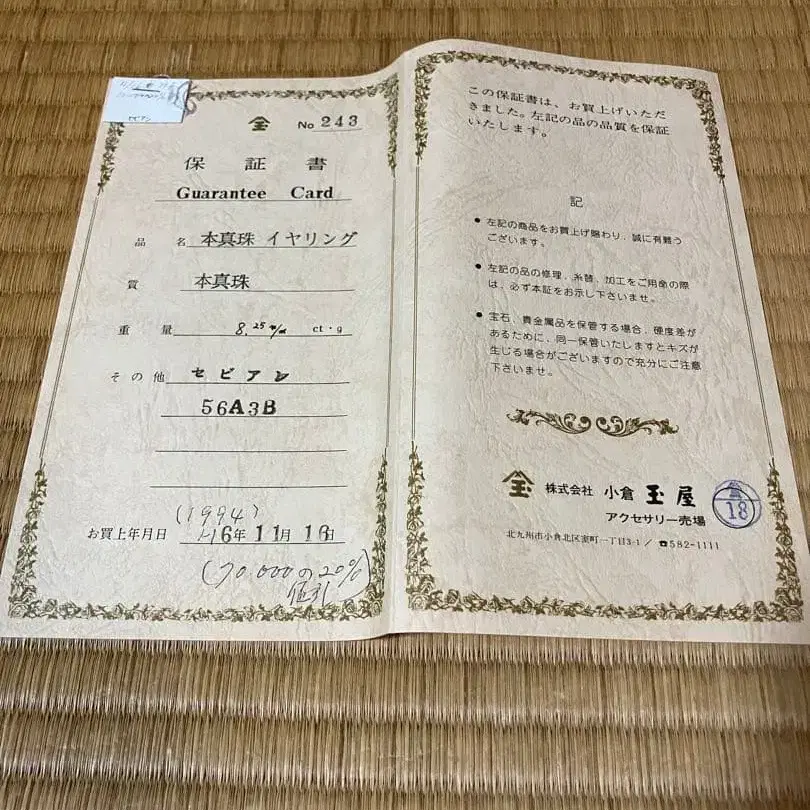 No 243
保証書
Guarantee Card
品名 本真珠 イヤリング
質 本真珠
重量 8.25m/m ct・g
その他 セビアン
56A3B
(1994)
お買上年月日 6年11月16日
(70,000の20%
値引)
この保証書は、お買上げいただ
きました。左記の品の品質を保証
いたします。
記
● 左記の商品をお買上げ賜わり、誠に有難う
ございます。
● 左記の品の修理、糸替、加工をご用命の際
は、必ず本証をお示し下さいませ。
● 宝石、貴金属品を保管する場合、硬度差が
あるために、同一保管いたしますとキズが
生じる場合がございますので充分にご注意
下さいませ。
株式会社 小倉 玉屋
アクセサリー売場
18
北九州市小倉北区室町一丁目3-1/☎582-1111